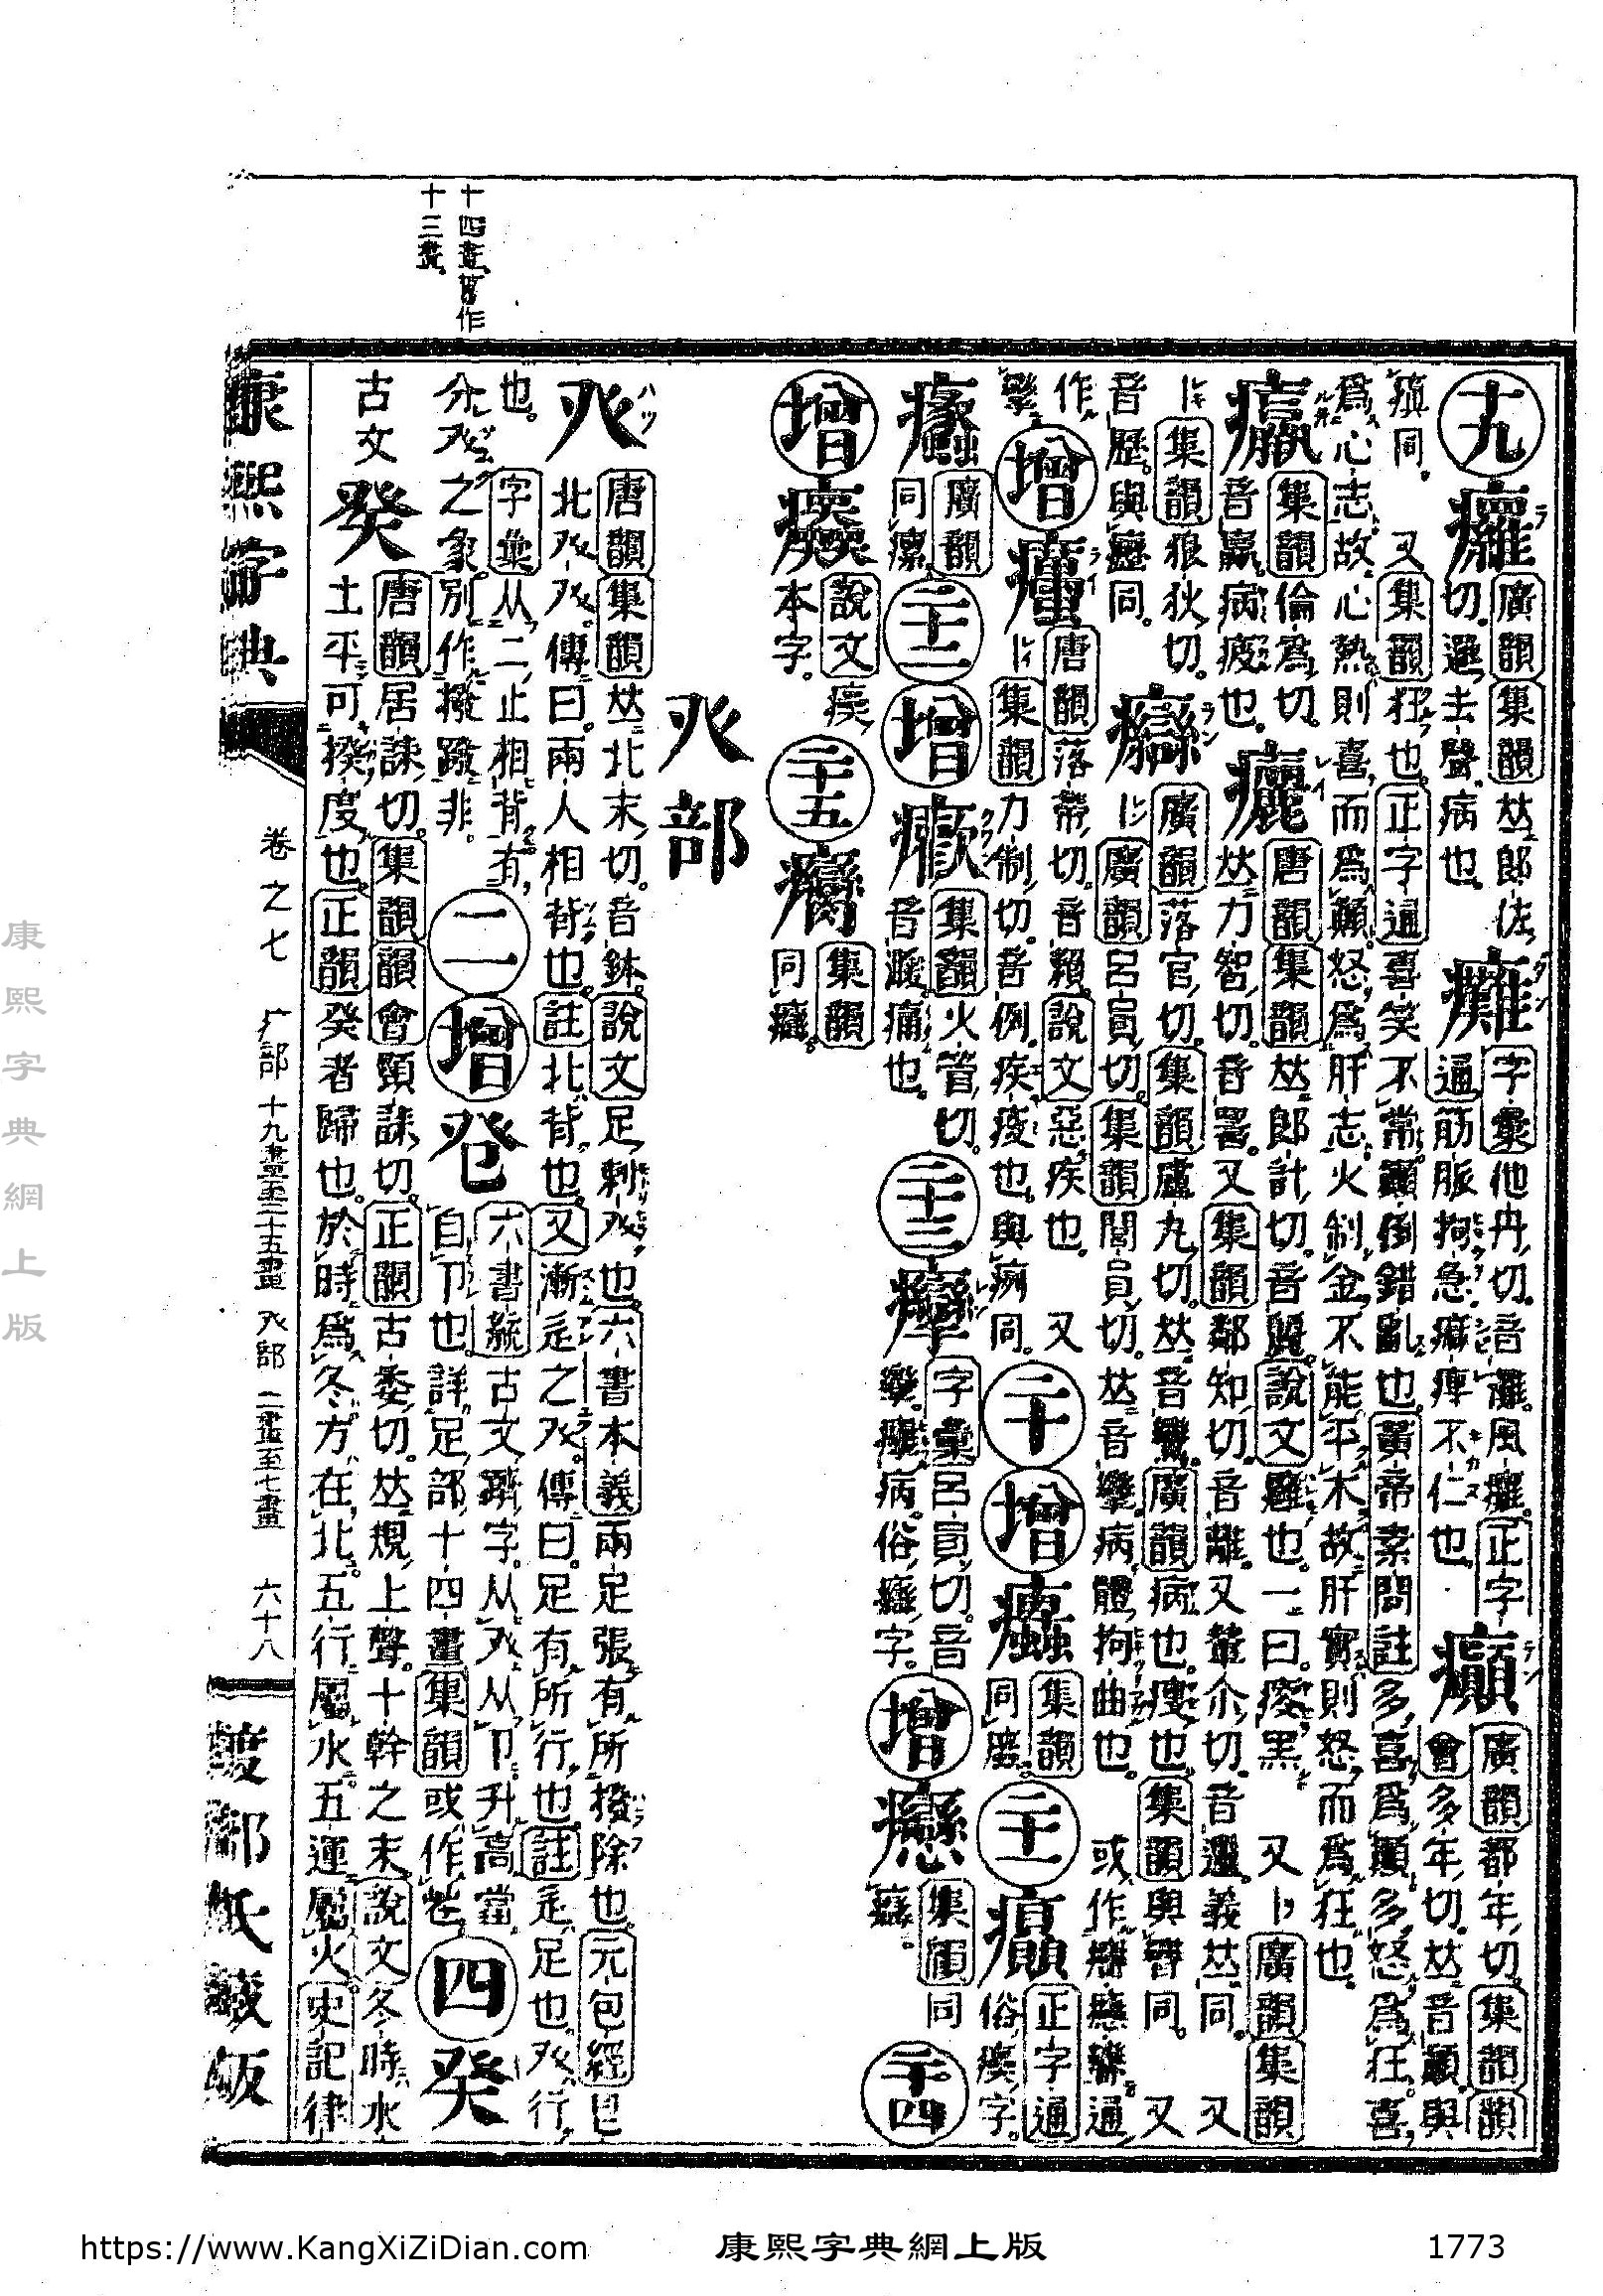 十四畫舊作
十三畫
十九 癱 廣韻集韻𠀤郎佐切邏去聲病也 癱 字彙他丹切音灘風癱正字通筋脈拘急痲痺不仁也 癲 廣韻都年切集韻韻會多年切𠀤音顚與
瘨同 又集韻狂也正字通喜笑不常顚倒錯亂也黃帝素問註多喜爲顚多怒爲狂喜
爲心志故心熱則喜而爲顚怒爲肝志火制金不能平木故肝實則怒而爲狂也
集韻倫爲切音羸病疲也 唐韻集韻𠀤郎計切音麗說文癰也一曰瘦黑 又廣韻集韻
𠀤力智切音詈 又集韻鄰知切音離 又輦尒切音邐義𠀤同 又
集韻狼狄切音歷與癧同 廣韻落官切集韻盧丸切𠀤音鸞廣韻病也瘦也集韻與臠同 又
廣韻呂員切集韻閭員切𠀤音攣病體拘曲也 或作 通
作攣 增 唐韻落蓋切音賴說文惡疾也 又集韻力制切音例疾疫也與癘同 二十 增 集韻同 二十一 正字通俗瘨字
廣韻同瘰 二十二 增 集韻火管切音 痛也 二十三 字彙呂員切音攣 病俗 字 增 集韻同 二十四
增 說文疾本字 二十五 集韻同
癶部
癶 唐韻集韻𠀤北末切音鉢說文足剌癶也六書本義兩足張有所撥除也元包經
北癶癶傳曰兩人相背也註北背也又漸辵之癶傳曰足有所行也註辵足也癶行
也字彙从二止相背有
分癶之象別作撥蹳非 二 增 六書 古文躋字从癶从卩升高當自卩也詳足部十四畫集韻或作 四 癸
古文 癸 唐韻居誄切集韻韻會頸誄切正韻古委切𠀤規上聲十幹之末說文冬時水
土平可揆度也正韻癸者歸也於時爲冬方在北五行屬水五運屬火史記律
康熙字典
卷之七
疒部 十九畫至二十五畫
癶部 二畫至七畫
六十八
康熙字典網上版
https://www.KangXiZiDian.com
康熙字典網上版
1773